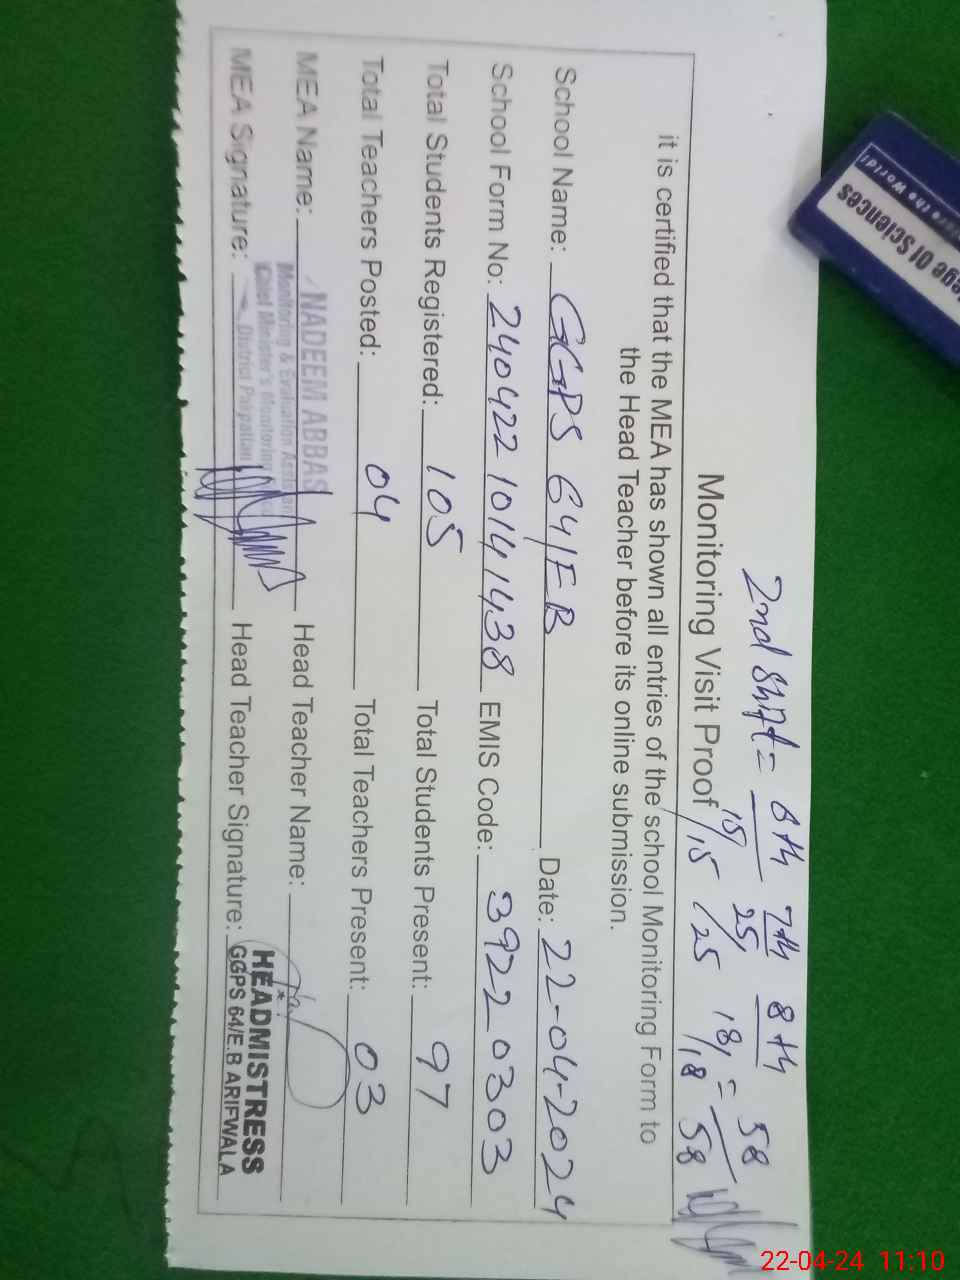 2nd shift = 6th 7th 8th
15/15 25/25 18/18 = 58/58
Monitoring Visit Proof
it is certified that the MEA has shown all entries of the school Monitoring Form to
the Head Teacher before its online submission.
School Name: GGPS 64/EB Date: 22-04-2024
School Form No: 240422 1014 1438 EMIS Code: 3922 0303
Total Students Registered: 105 Total Students Present: 97
Total Teachers Posted: 04 Total Teachers Present: 03
MEA Name: NADEEM ABBAS Head Teacher Name:
Monitoring & Evaluation Assistant
Chief Minister's Monitoring
District Pakpattan
MEA Signature: Head Teacher Signature:
HEADMISTRESS
GGPS 64/E.B ARIFWALA
ege Of Sciences
the World!
22-04-24 11:10